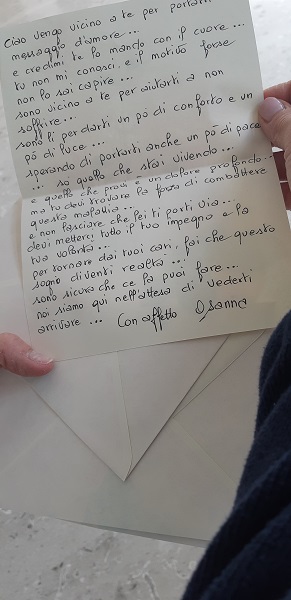 Ciao vengo vicino a te per portarti
messaggio d'amore...
e credimi te lo mando con il cuore...
tu non mi conosci e il motivo forse
non lo sai capire...
sono vicino a te per aiutarti a non
soffrire...
sono lì per darti un pò di conforto e un
pò di luce...
sperando di portarti anche un pò di pace
... so quello che stai vivendo...
e quello che provi è un dolore profondo...
ma tu devi trovare la forza di combattere
questa malattia...
e non lasciare che lei ti porti via...
devi metterci tutto il tuo impegno e la
tua volontà...
per tornare dai tuoi cari, fai che questo
sogno diventi realtà...
sono sicura che ce la puoi fare...
noi siamo qui nell'attesa di vederti
arrivare... Con affetto Osanna